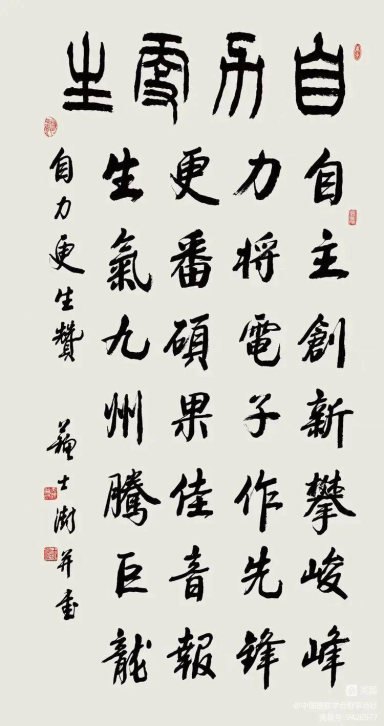 自力更生
自主創新攀峻峰
力將電子作先鋒
更番碩果佳音報
生氣九州騰巨龍
自力更生贊
蘇士澍并書